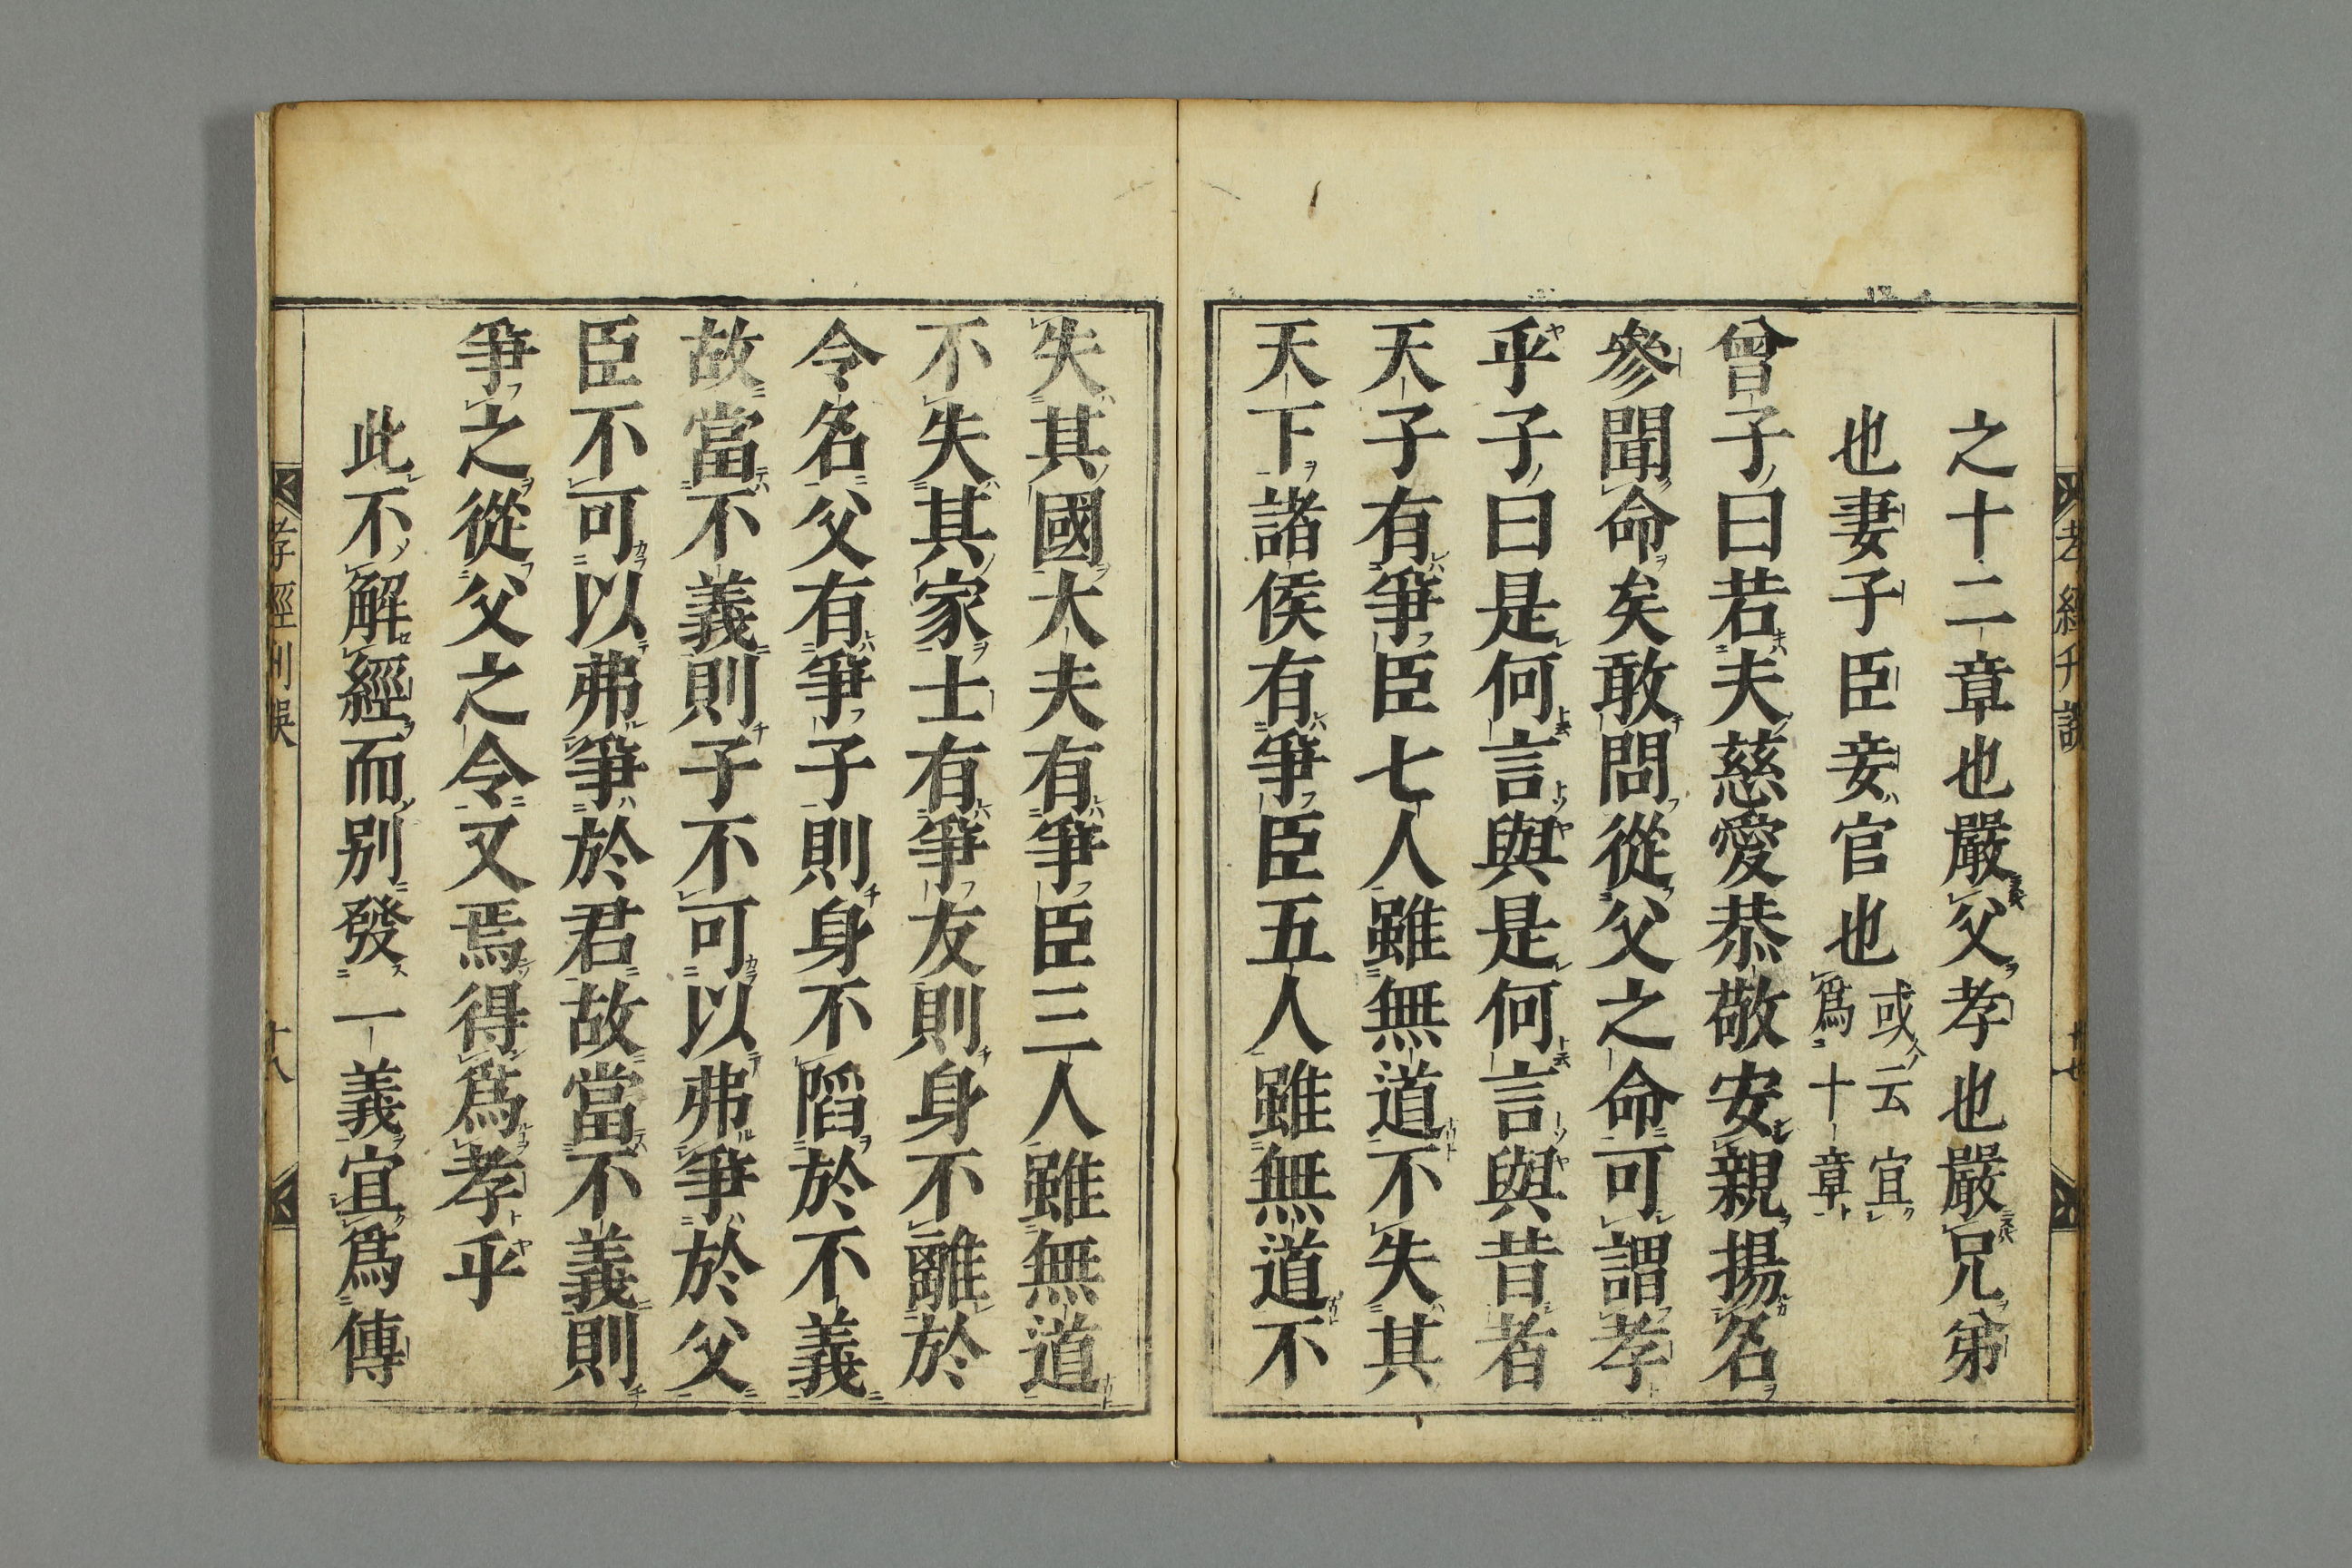 之十二章也嚴父孝也嚴兄弟
也妻子臣妾官也
或云宜
爲十章
曾子曰若夫慈愛恭敬安親揚名
參聞命矣敢問從父之命可謂孝
乎子曰是何言與是何言與昔者
天子有爭臣七人雖無道不失其
天下諸侯有爭臣五人雖無道不
失其國大夫有爭臣三人雖無道
不失其家士有爭友則身不離於
令名父有爭子則身不陷於不義
故當不義則子不可以弗爭於父
臣不可以弗爭於君故當不義則
爭之從父之令又焉得爲孝乎
此不解經而别發一義宜爲傳
孝經刊誤
十八